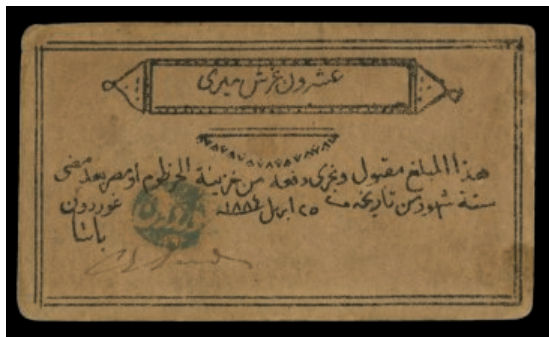 عشرون غرش ميرى
هذا المبلغ مقبول ويجرى دفعه من خزينة الخرطوم او مصر بعد مضى
ستة شهور من تاريخه فى ٢٥ ابريل ١٨٨٤ غوردون
باشا